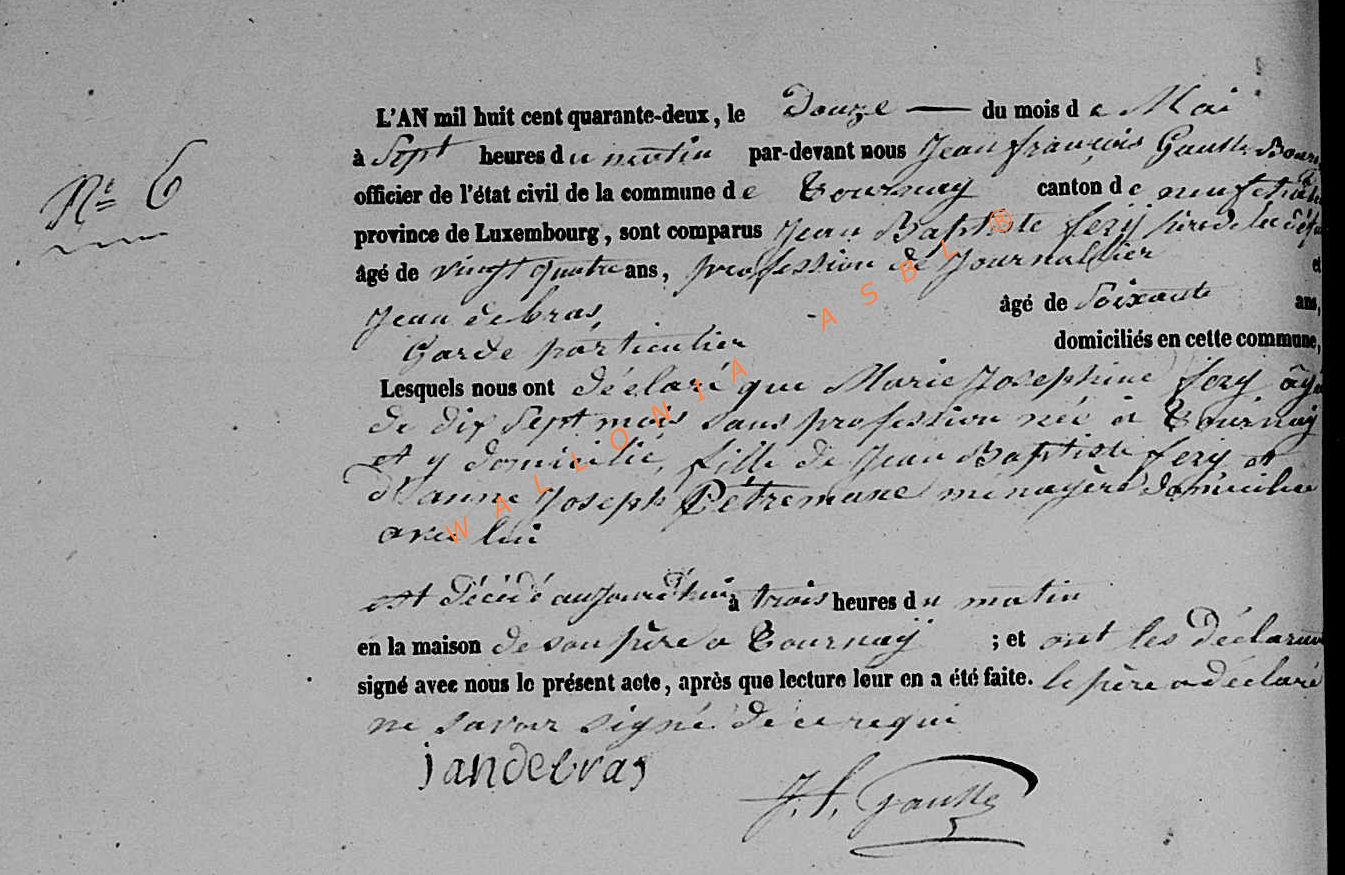 N° 6
L'AN mil huit cent quarante-deux, le Douze — du mois de Mai
à Sept heures du matin par-devant nous Jean françois
officier de l'état civil de la commune de Tournay canton de
province de Luxembourg, sont comparus Jean Baptiste fery père de la
âgé de vingt quatre ans, profession de Journallier et
Jean debras, âgé de Soixante ans,
Garde particulier domiciliés en cette commune,
Lesquels nous ont déclaré que Marie Josephine fery âgé
de dix Sept mois sans profession née à Tournay
et y domicilié, fille de Jean Baptiste fery et
d'anne Joseph Pétremane ménagère domicilié
avec lui
est décédé aujourd'hui à trois heures du matin
en la maison de son père a Tournaÿ ; et ont les
signé avec nous le présent acte, après que lecture leur en a été faite. le père a déclaré
ne savoir signé de ce requi
jandebras
J. f.
WALLONIA ASBL ®